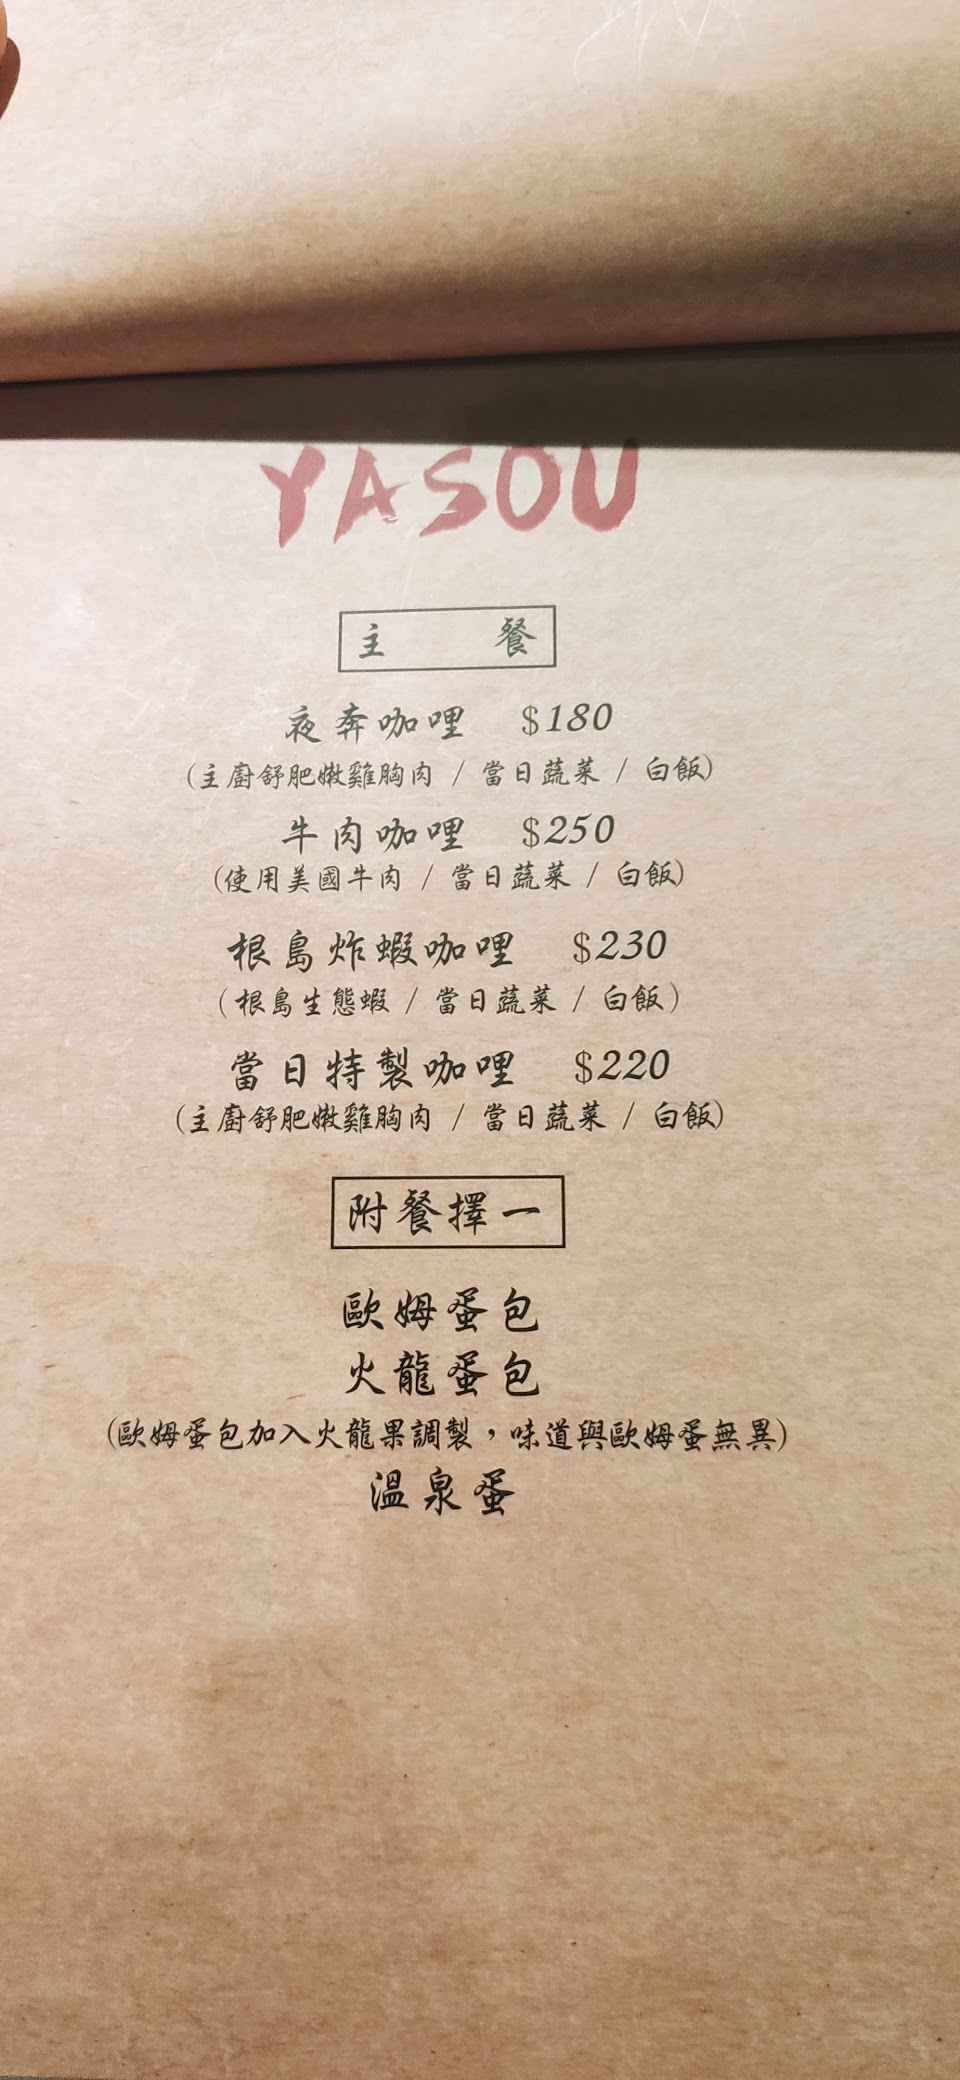 YASOU
主 餐
夜奔咖哩 $180
(主廚舒肥嫩雞胸肉 / 當日蔬菜 / 白飯)
牛肉咖哩 $250
(使用美國牛肉 / 當日蔬菜 / 白飯)
根島炸蝦咖哩 $230
(根島生態蝦 / 當日蔬菜 / 白飯)
當日特製咖哩 $220
(主廚舒肥嫩雞胸肉 / 當日蔬菜 / 白飯)
附餐擇一
歐姆蛋包
火龍蛋包
(歐姆蛋包加入火龍果調製，味道與歐姆蛋無異)
溫泉蛋